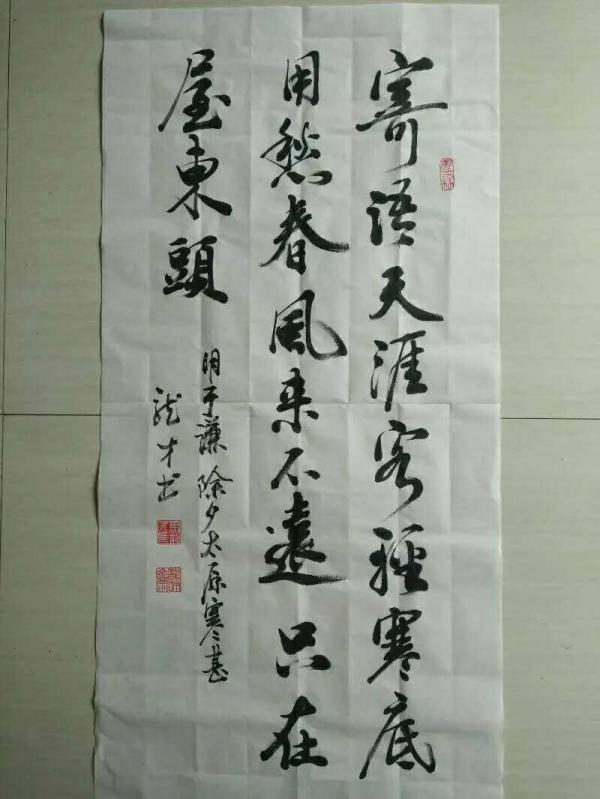 寄语天涯客輕寒底
用愁春風来不遠只在
屋東頭
明于謙 除夕太原寒甚
龍才书